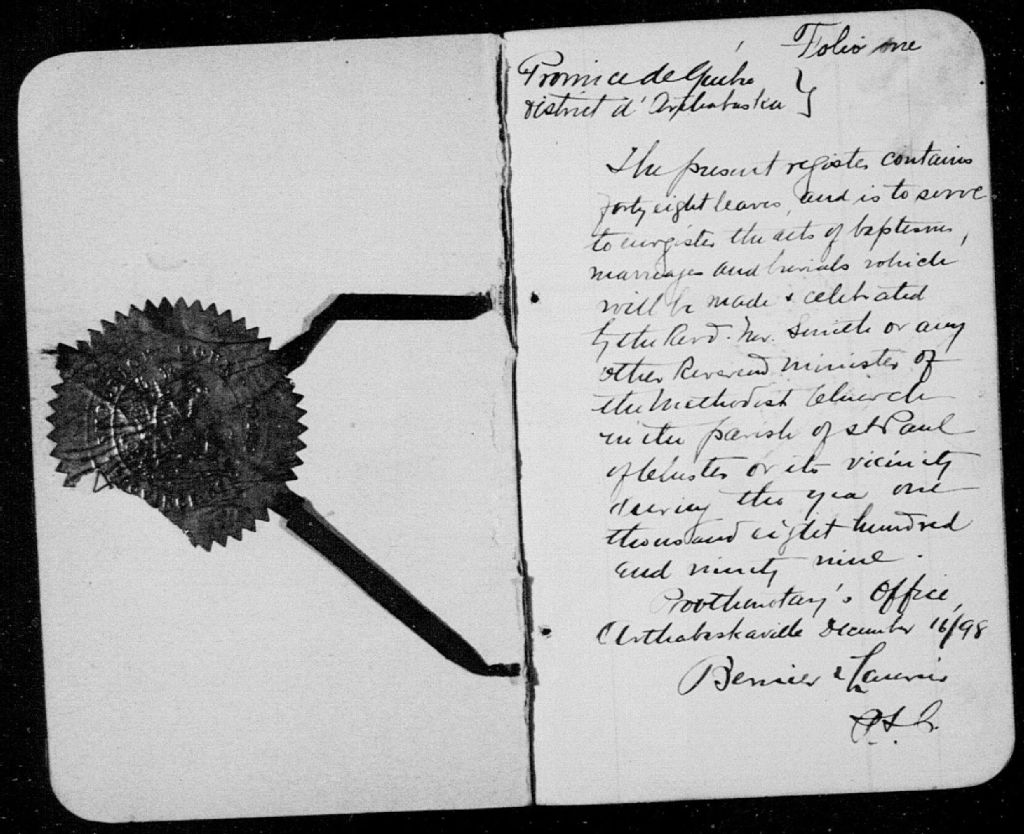 Folio one
Province de Québec
District d'Arthabaska
The present register contains
forty eight leaves, and is to serve
to enregister the acts of baptisms,
marriages and burials which
will be made & celebrated
by the Revd. Smith or any
other Reverend minister of
the Methodist Church
in the parish of St Paul
of Chester or its vicinity
during the year one
thousand eight hundred
and ninety nine.
Prothonotary's Office,
Arthabaskaville December 16/98
Bernier & Laurier
P.S.C.